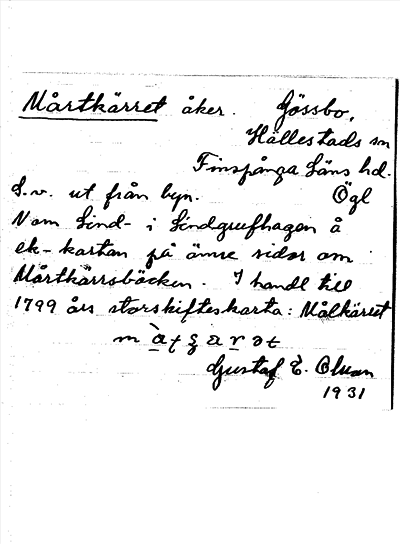 Mårtkärret åker. Gössbo,
Hällestads sn
Finspånga Läns hd.
S.v. ut från byn. Ögl
N om Lind- i Lindgrufhagen å
ek-kartan på ömse sidor om
Mårtkärrsbäcken. I handl till
1799 års storskifteskarta: Målkärret
Gustaf E. Olsson
1931